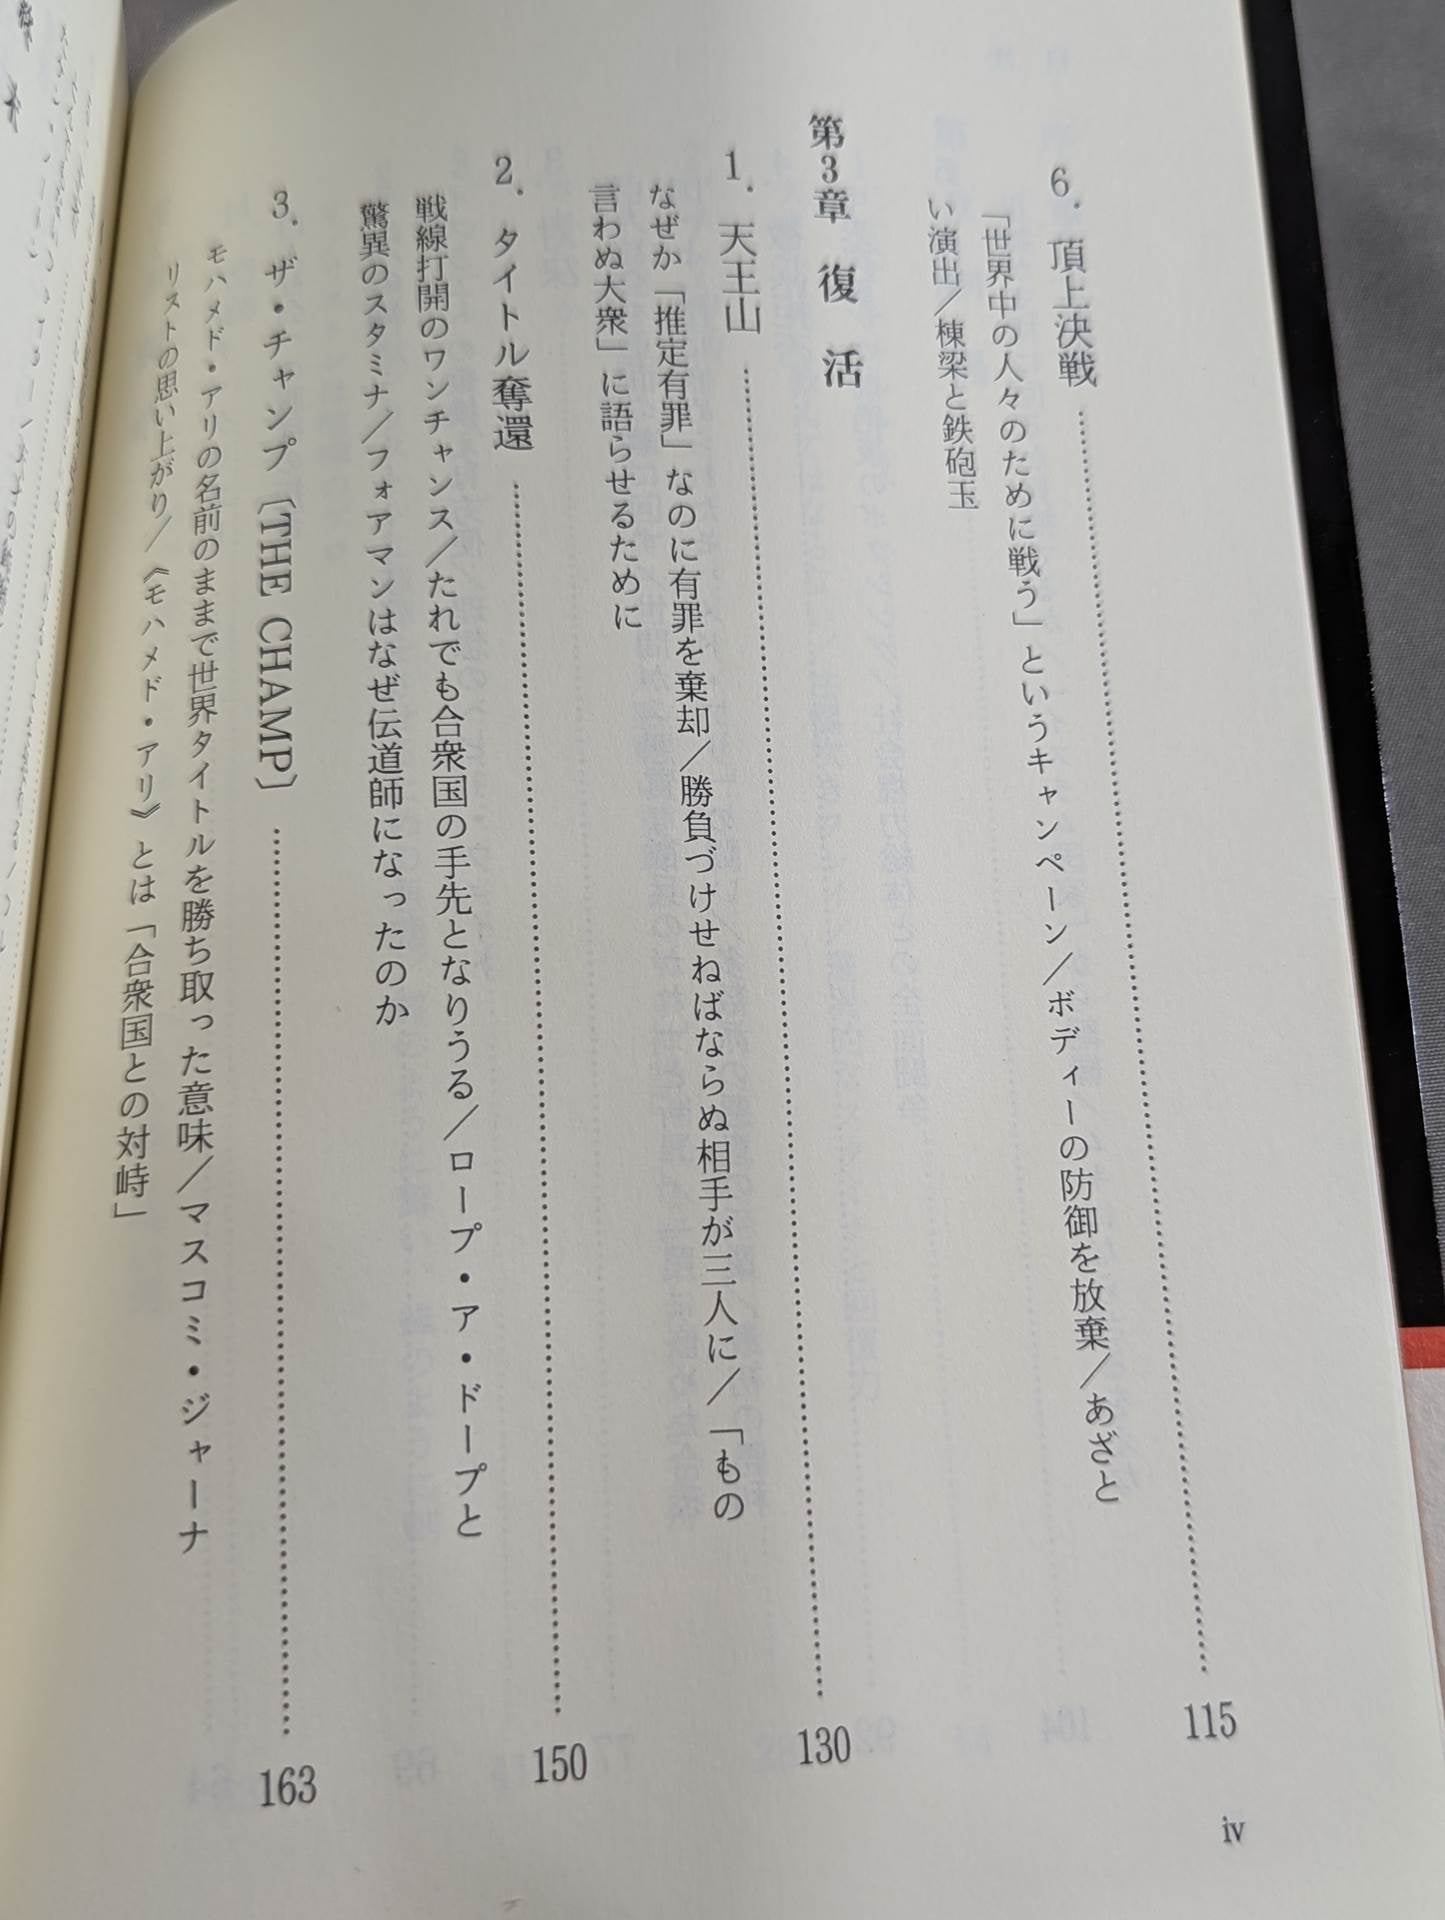 6. 頂上決戦……………………115
「世界中の人々のために戦う」というキャンペーン／ボディーの防御を放棄／あざと
い演出／棟梁と鉄砲玉
第3章 復 活
1. 天王山……………………130
なぜか「推定有罪」なのに有罪を棄却／勝負づけせねばならぬ相手が三人に／「もの
言わぬ大衆」に語らせるために
2. タイトル奪還……………………150
戦線打開のワンチャンス／たれでも合衆国の手先となりうる／ロープ・ア・ドープと
驚異のスタミナ／フォアマンはなぜ伝道師になったのか
3. ザ・チャンプ〔THE CHAMP〕……………………163
モハメド・アリの名前のままで世界タイトルを勝ち取った意味／マスコミ・ジャーナ
リストの思い上がり／《モハメド・アリ》とは「合衆国との対峙」
iv